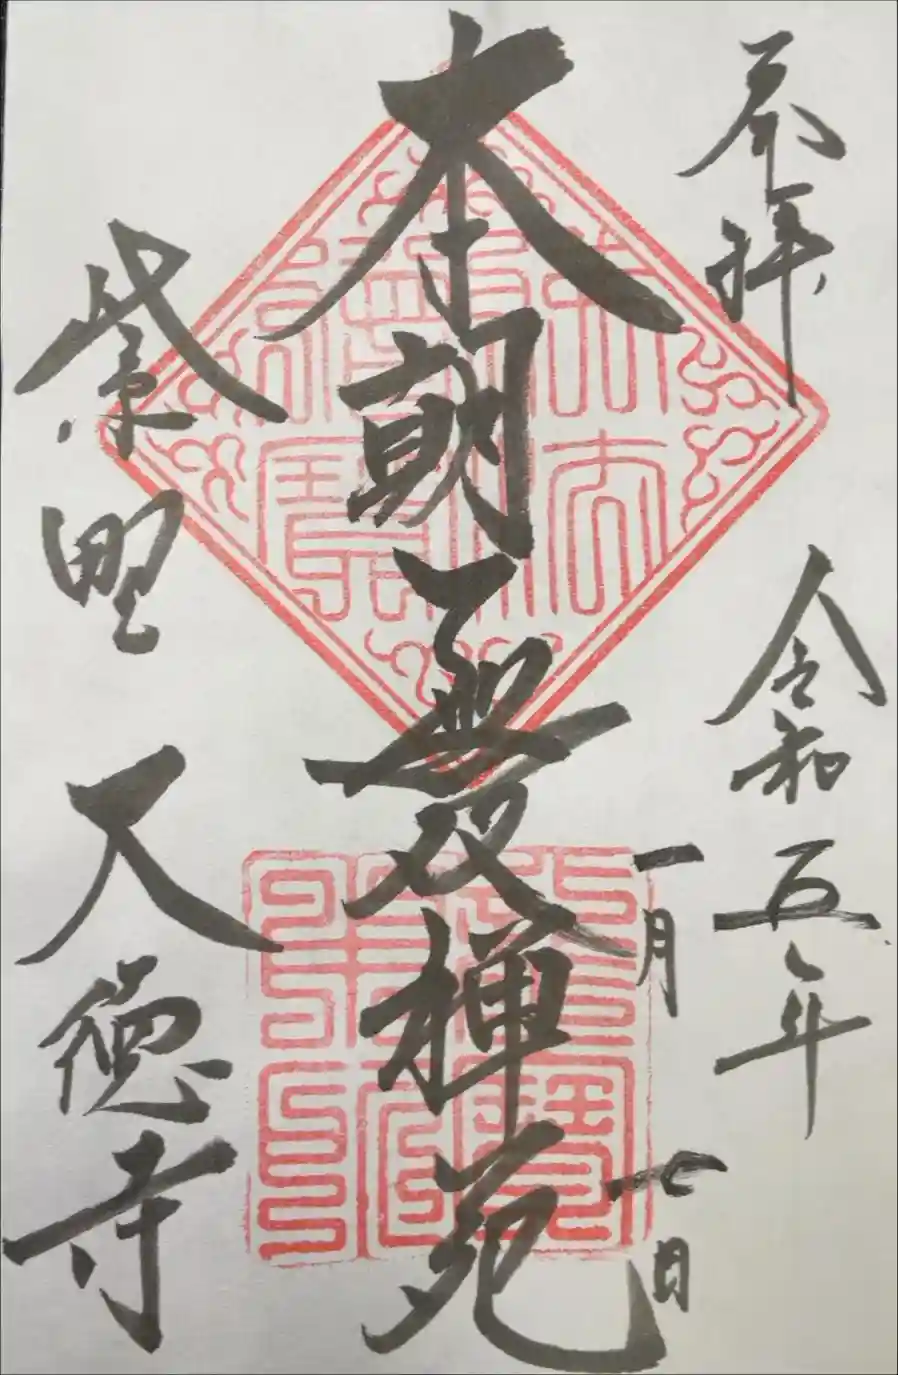 奉拝 令和五年
一月七日
本朝無双禅苑
紫野 大徳寺